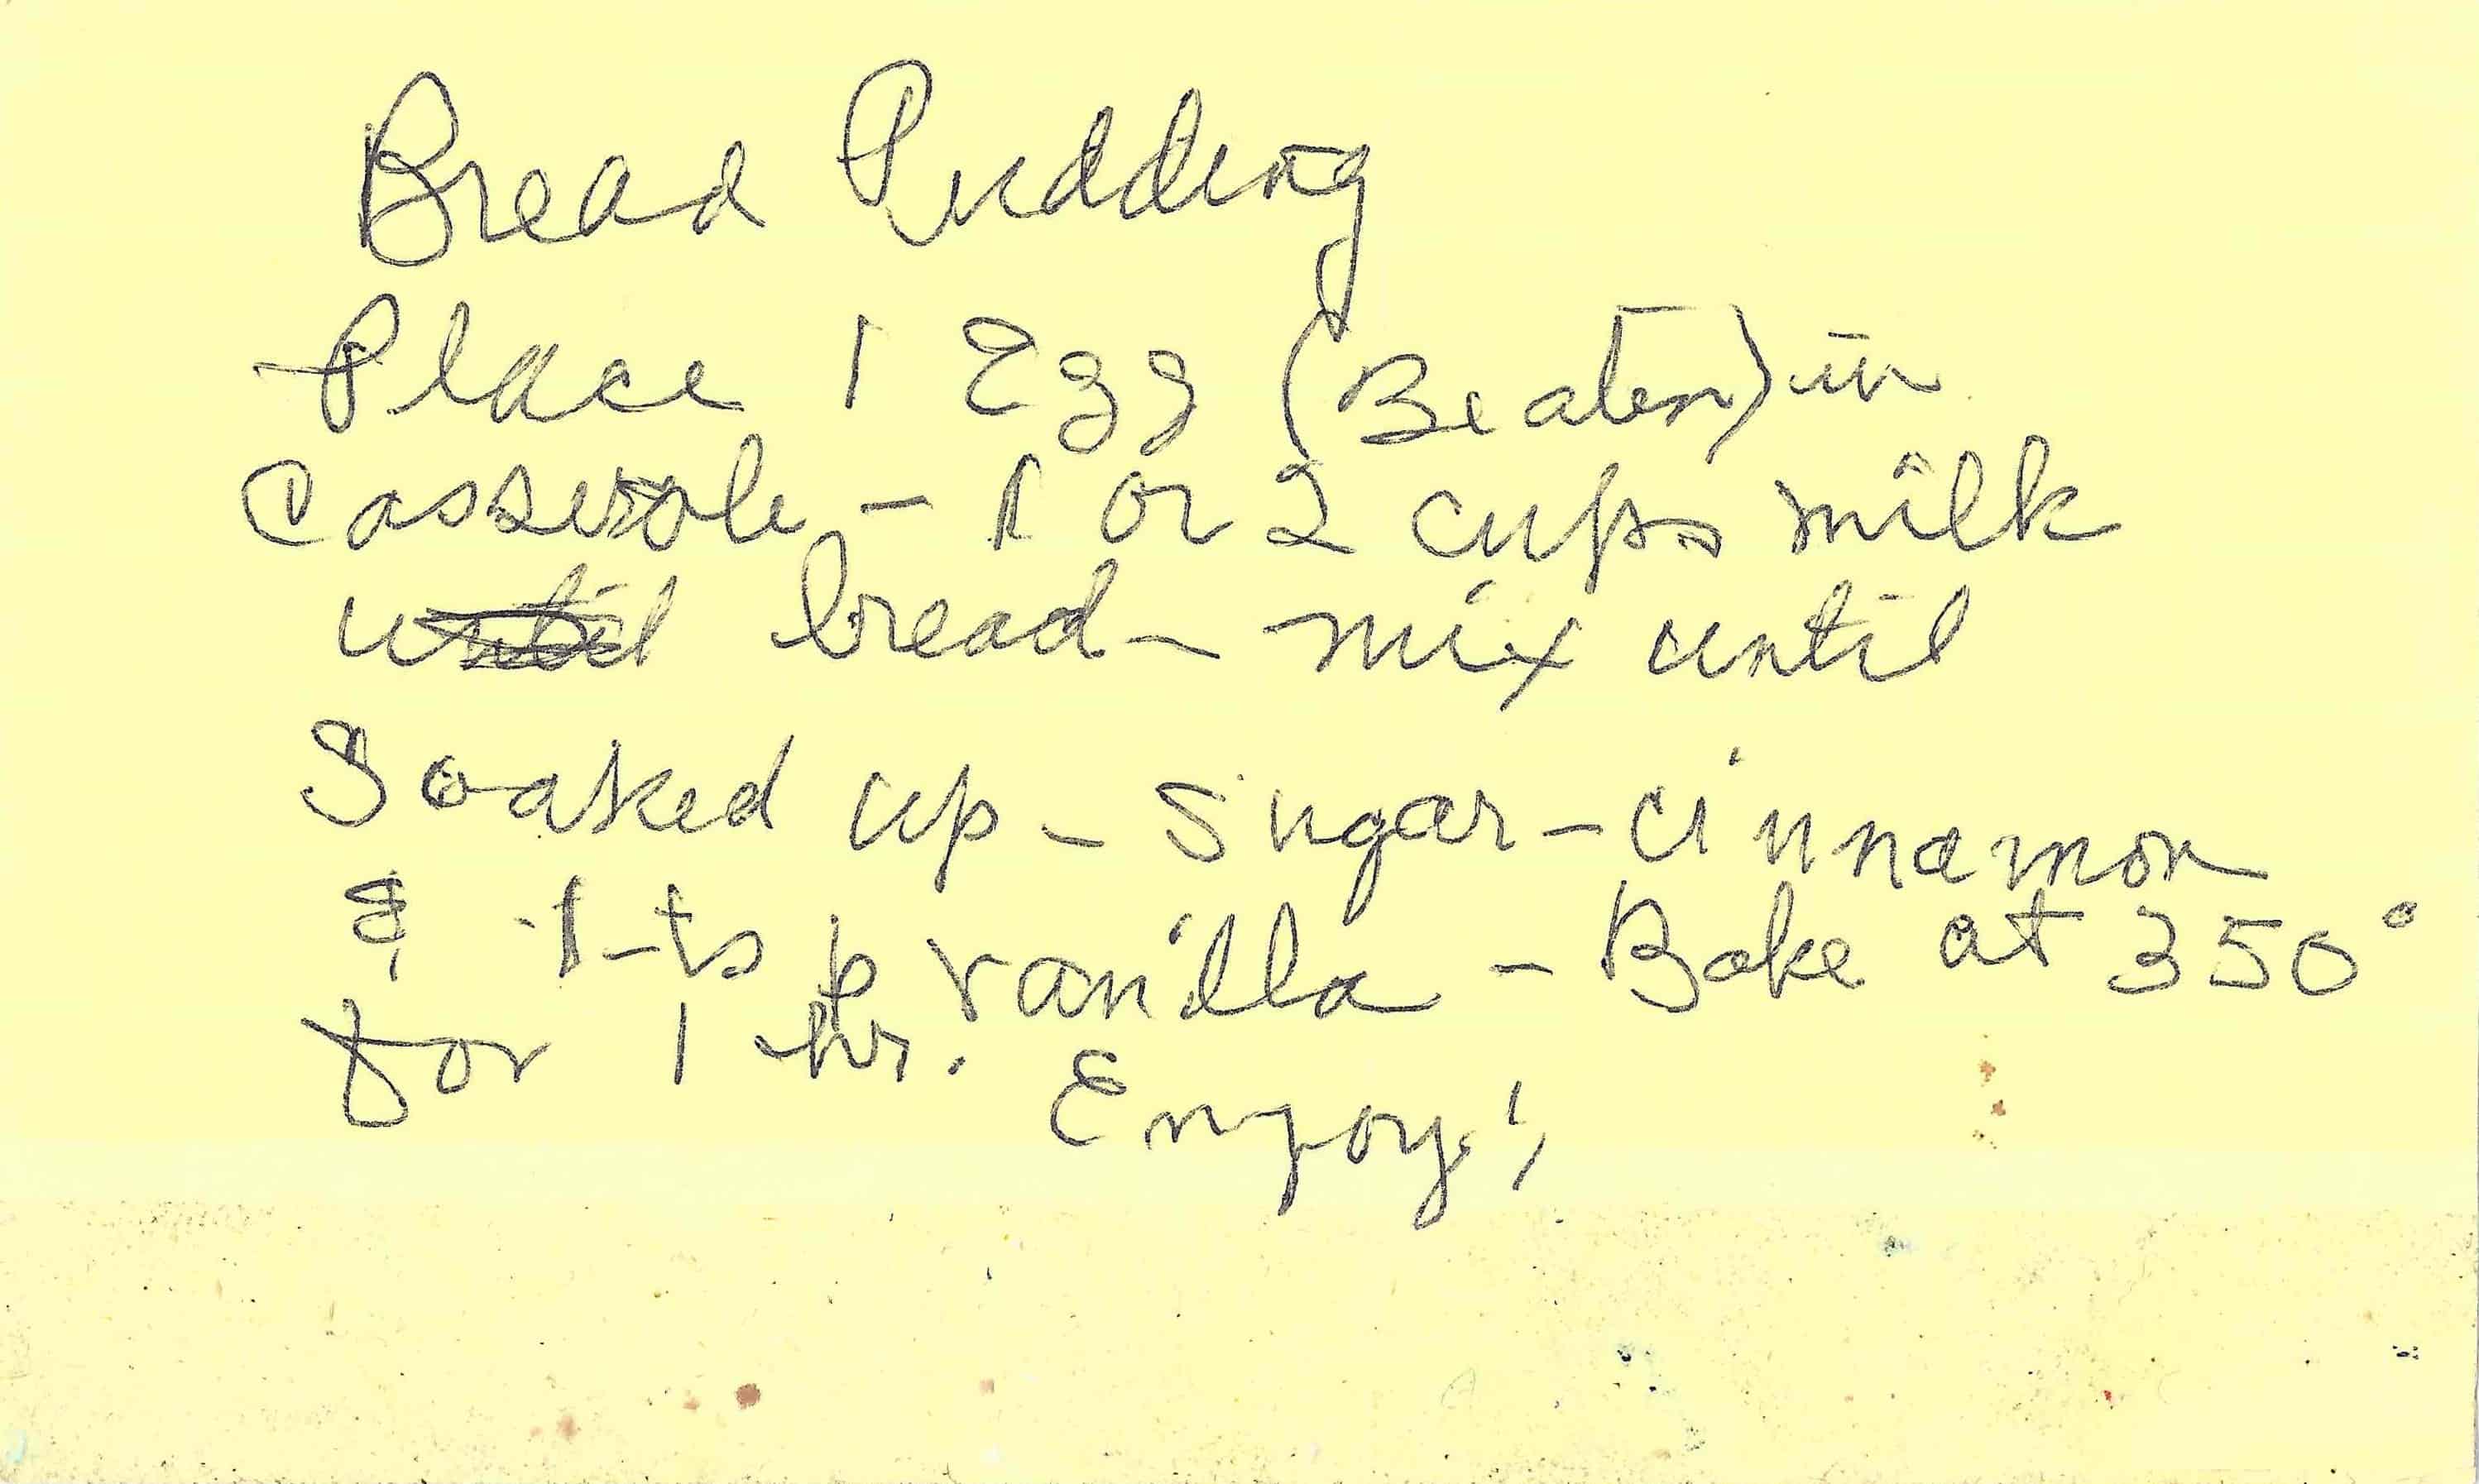 Bread Pudding
Place 1 Egg (Beaten) in
Casserole - 1 or 2 cups milk
until bread - mix until
Soaked up - Sugar - cinnamon
& 1-tsp vanilla - Bake at 350°
for 1 hr. Enjoy!